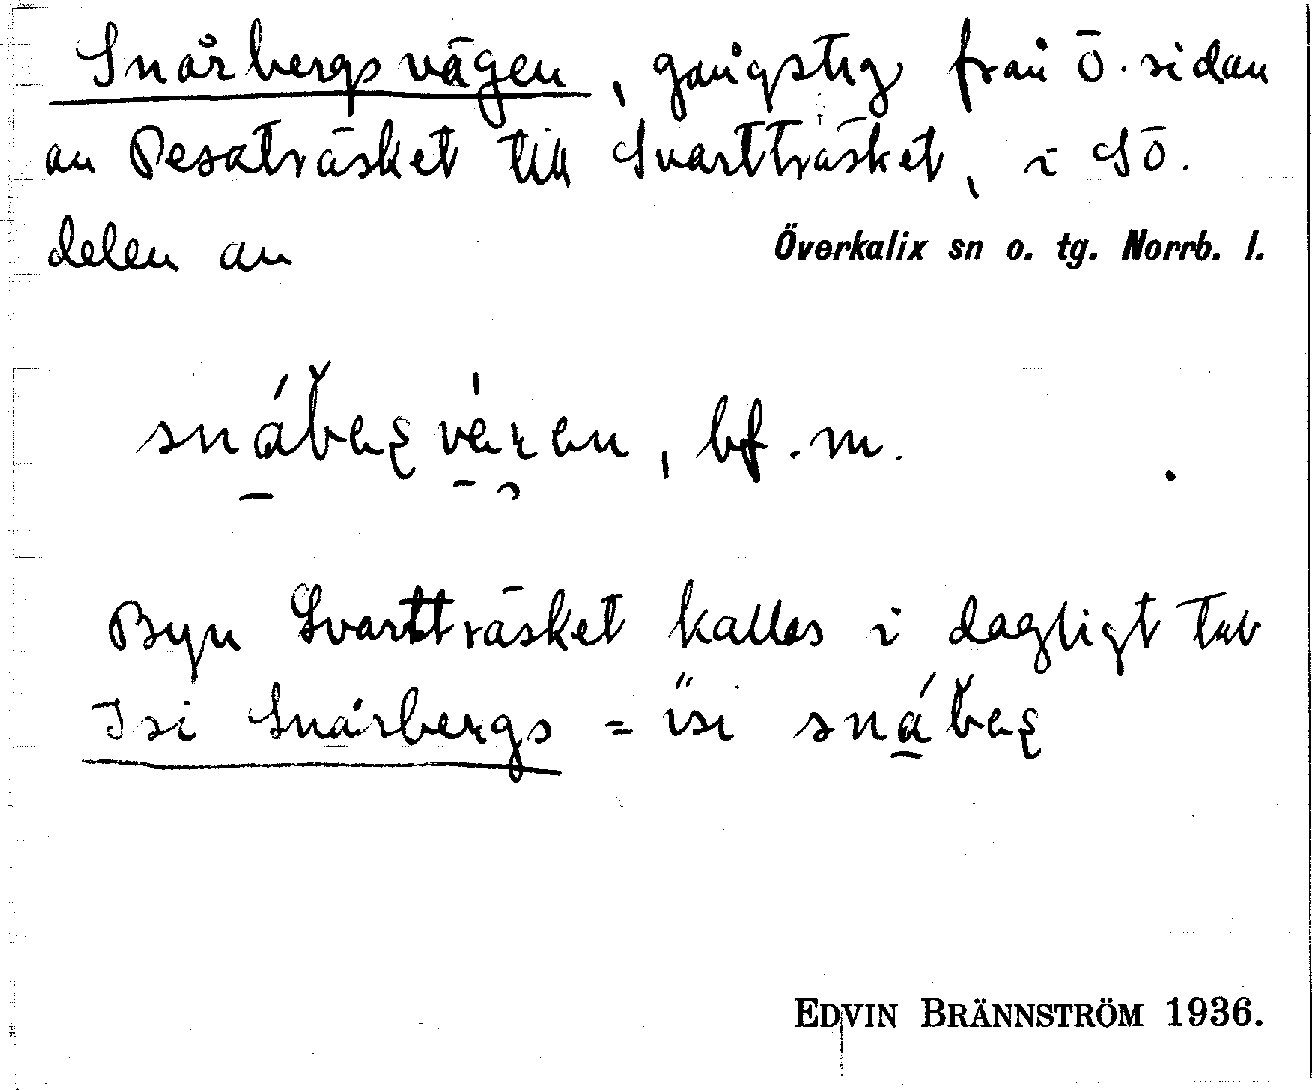 Snårbergsvägen, gångstig från Ö. sidan
av Pesaträsket till Svartträsket, i SÖ.
delen av Överkalix sn o. tg. Norrb. l.
bf. m.
Byn Svartträsket kallas i dagligt tal
Isi Snårbergs =
EDVIN BRÄNNSTRÖM 1936.